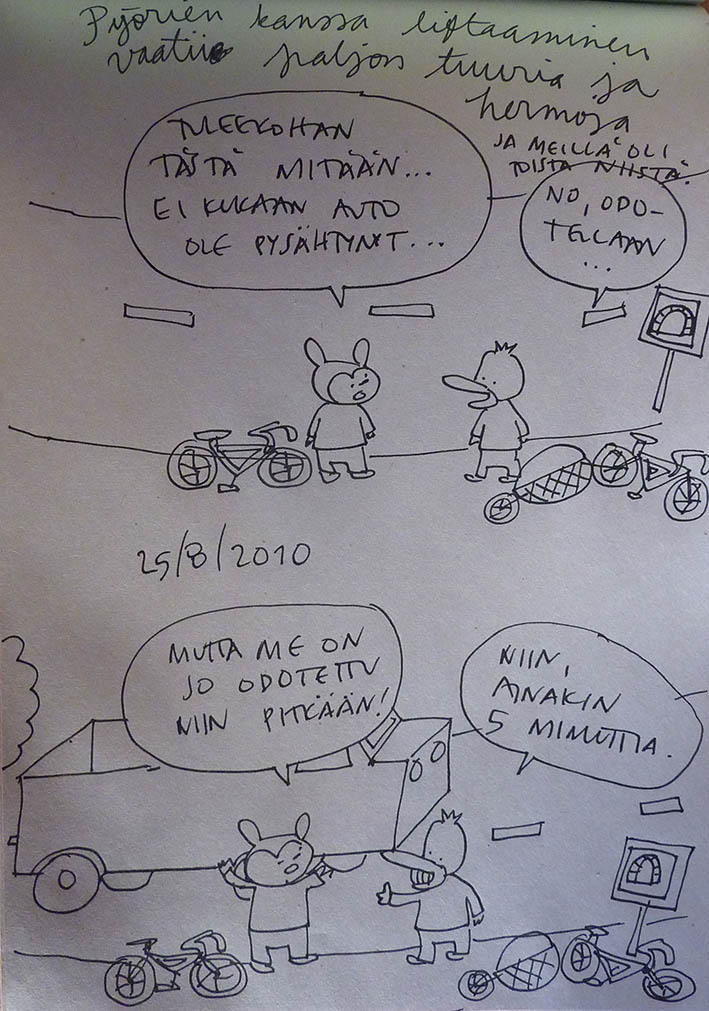 Pyörien kanssa liftaaminen
vaatii paljon tuuria ja
hermoja
JA MEILLÄ OLI
TOISTA NIISTÄ.
TULEEKOHAN
TÄSTÄ MITÄÄN...
EI KUKAAN AUTO
OLE PYSÄHTYNYT...
NO, ODO-
TELLAAN
...
25/8/2010
MUTTA ME ON
JO ODOTETTU
NIIN PITKÄÄN!
NIIN,
AINAKIN
5 MINUTTIA.